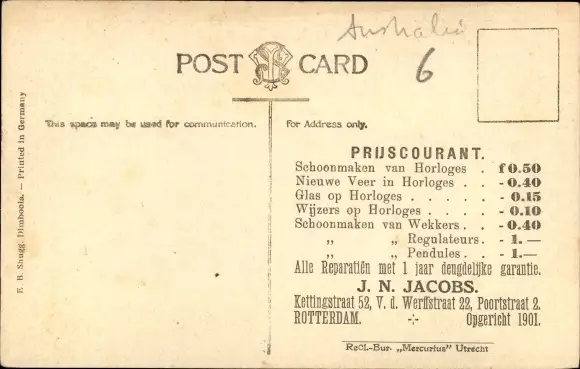 Australië
6
POST CARD
This space may be used for communication.
For Address only.
F. B. Shugg. Dimboola. — Printed in Germany
PRIJSCOURANT.
Schoonmaken van Horloges . f 0.50
Nieuwe Veer in Horloges . . - 0.40
Glas op Horloges . . . . . - 0.15
Wijzers op Horloges . . . . - 0.10
Schoonmaken van Wekkers . . - 0.40
„ „ Regulateurs . . - 1.—
„ „ Pendules . . - 1.—
Alle Reparatiën met 1 jaar deugdelijke garantie.
J. N. JACOBS.
Kettingstraat 52, V. d. Werffstraat 22, Poortstraat 2.
ROTTERDAM. -:- Opgericht 1901.
Recl.-Bur. „Mercurius” Utrecht
6